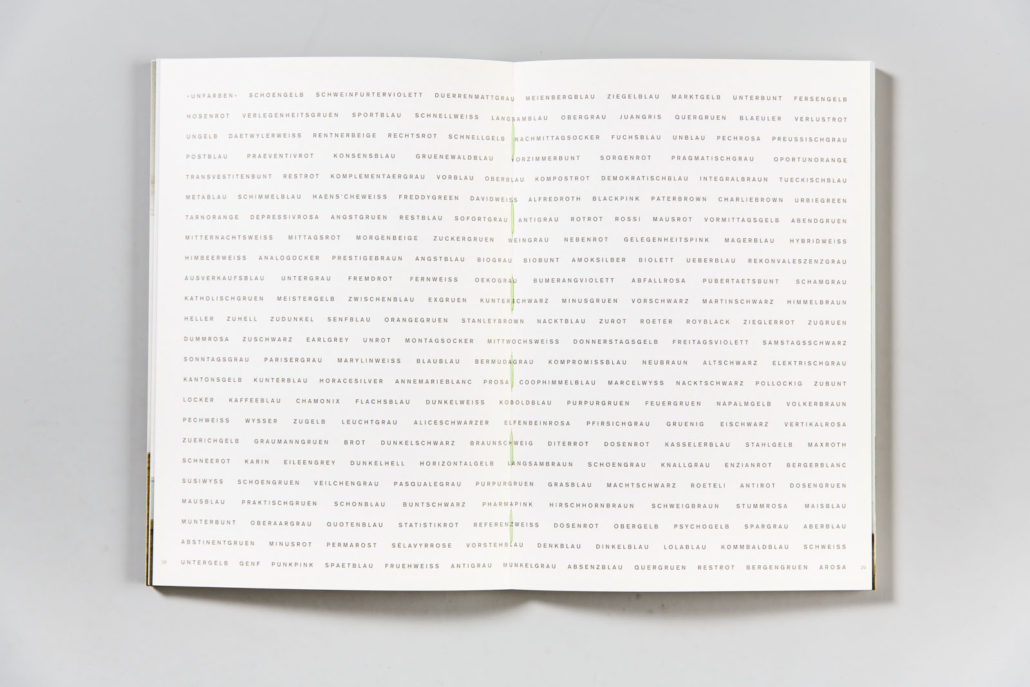 «UNFARBEN» SCHOENGELB SCHWEINFURTERVIOLETT DUERRENMATTGRAU MEIENBERGBLAU ZIEGELBLAU MARKTGELB UNTERBUNT FERSENGELB
HOSENROT VERLEGENHEITSGRUEN SPORTBLAU SCHNELLWEISS LANGSAMBLAU OBERGRAU JUANGRIS QUERGRUEN BLAEULER VERLUSTROT
UNGELB DAETWYLERWEISS RENTNERBEIGE RECHTSROT SCHNELLGELB NACHMITTAGSOCKER FUCHSBLAU UNBLAU PECHROSA PREUSSISCHGRAU
POSTBLAU PRAEVENTIVROT KONSENSBLAU GRUENEWALDBLAU VORZIMMERBUNT SORGENROT PRAGMATISCHGRAU OPORTUNORANGE
TRANSVESTITENBUNT RESTROT KOMPLEMENTAERGRAU VORBLAU OBERBLAU KOMPOSTROT DEMOKRATISCHBLAU INTEGRALBRAUN TUECKISCHBLAU
METABLAU SCHIMMELBLAU HAENS'CHEWEISS FREDDYGREEN DAVIDWEISS ALFREDROTH BLACKPINK PATERBROWN CHARLIEBROWN URBIEGREEN
TARNORANGE DEPRESSIVROSA ANGSTGRUEN RESTBLAU SOFORTGRAU ANTIGRAU ROTROT ROSSI MAUSROT VORMITTAGSGELB ABENDGRUEN
MITTERNACHTSWEISS MITTAGSROT MORGENBEIGE ZUCKERGRUEN WEINGRAU NEBENROT GELEGENHEITSPINK MAGERBLAU HYBRIDWEISS
HIMBEERWEISS ANALOGOCKER PRESTIGEBRAUN ANGSTBLAU BIOGRAU BIOBUNT AMOKSILBER BIOLETT UEBERBLAU REKONVALESZENZGRAU
AUSVERKAUFSBLAU UNTERGRAU FREMDROT FERNWEISS OEKOGRAU BUMERANGVIOLETT ABFALLROSA PUBERTAETSBUNT SCHAMGRAU
KATHOLISCHGRUEN MEISTERGELB ZWISCHENBLAU EXGRUEN KUNTERSCHWARZ MINUSGRUEN VORSCHWARZ MARTINSCHWARZ HIMMELBRAUN
HELLER ZUHELL ZUDUNKEL SENFBLAU ORANGEGRUEN STANLEYBROWN NACKTBLAU ZUROT ROETER ROYBLACK ZIEGLERROT ZUGRUEN
DUMMROSA ZUSCHWARZ EARLGREY UNROT MONTAGSOCKER MITTWOCHSWEISS DONNERSTAGSGELB FREITAGSVIOLETT SAMSTAGSSCHWARZ
SONNTAGSGRAU PARISERGRAU MARYLINWEISS BLAUBLAU BERMUDAGRAU KOMPROMISSBLAU NEUBRAUN ALTSCHWARZ ELEKTRISCHGRAU
KANTONSGELB KUNTERBLAU HORACESILVER ANNEMARIEBLANC PROSA COOPHIMMELBLAU MARCELWYSS NACKTSCHWARZ POLLOCKIG ZUBUNT
LOCKER KAFFEEBLAU CHAMONIX FLACHSBLAU DUNKELWEISS KOBOLDBLAU PURPURGRUEN FEUERGRUEN NAPALMGELB VOLKERBRAUN
PECHWEISS WYSSER ZUGELB LEUCHTGRAU ALICESCHWARZER ELFENBEINROSA PFIRSICHGRAU GRUENIG EISCHWARZ VERTIKALROSA
ZUERICHGELB GRAUMANNGRUEN BROT DUNKELSCHWARZ BRAUNSCHWEIG DITERROT DOSENROT KASSELERBLAU STAHLGELB MAXROTH
SCHNEEROT KARIN EILEENGREY DUNKELHELL HORIZONTALGELB LANGSAMBRAUN SCHOENGRAU KNALLGRAU ENZIANROT BERGERBLANC
SUSIWYSS SCHOENGRUEN VEILCHENGRAU PASQUALEGRAU PURPURGRUEN GRASBLAU MACHTSCHWARZ ROETELI ANTIROT DOSENGRUEN
MAUSBLAU PRAKTISCHGRUEN SCHONBLAU BUNTSCHWARZ PHARMAPINK HIRSCHHORNBRAUN SCHWEIGBRAUN STUMMROSA MAISBLAU
MUNTERBUNT OBERAARGRAU QUOTENBLAU STATISTIKROT REFERENZWEISS DOSENROT OBERGELB PSYCHOGELB SPARGRAU ABERBLAU
ABSTINENTGRUEN MINUSROT PERMAROST SELAVYRROSE VORSTEHBLAU DENKBLAU DINKELBLAU LOLABLAU KOMMBALDBLAU SCHWEISS
UNTERGELB GENF PUNKPINK SPAETBLAU FRUEHWEISS ANTIGRAU MUNKELGRAU ABSENZBLAU QUERGRUEN RESTROT BERGENGRUEN AROSA